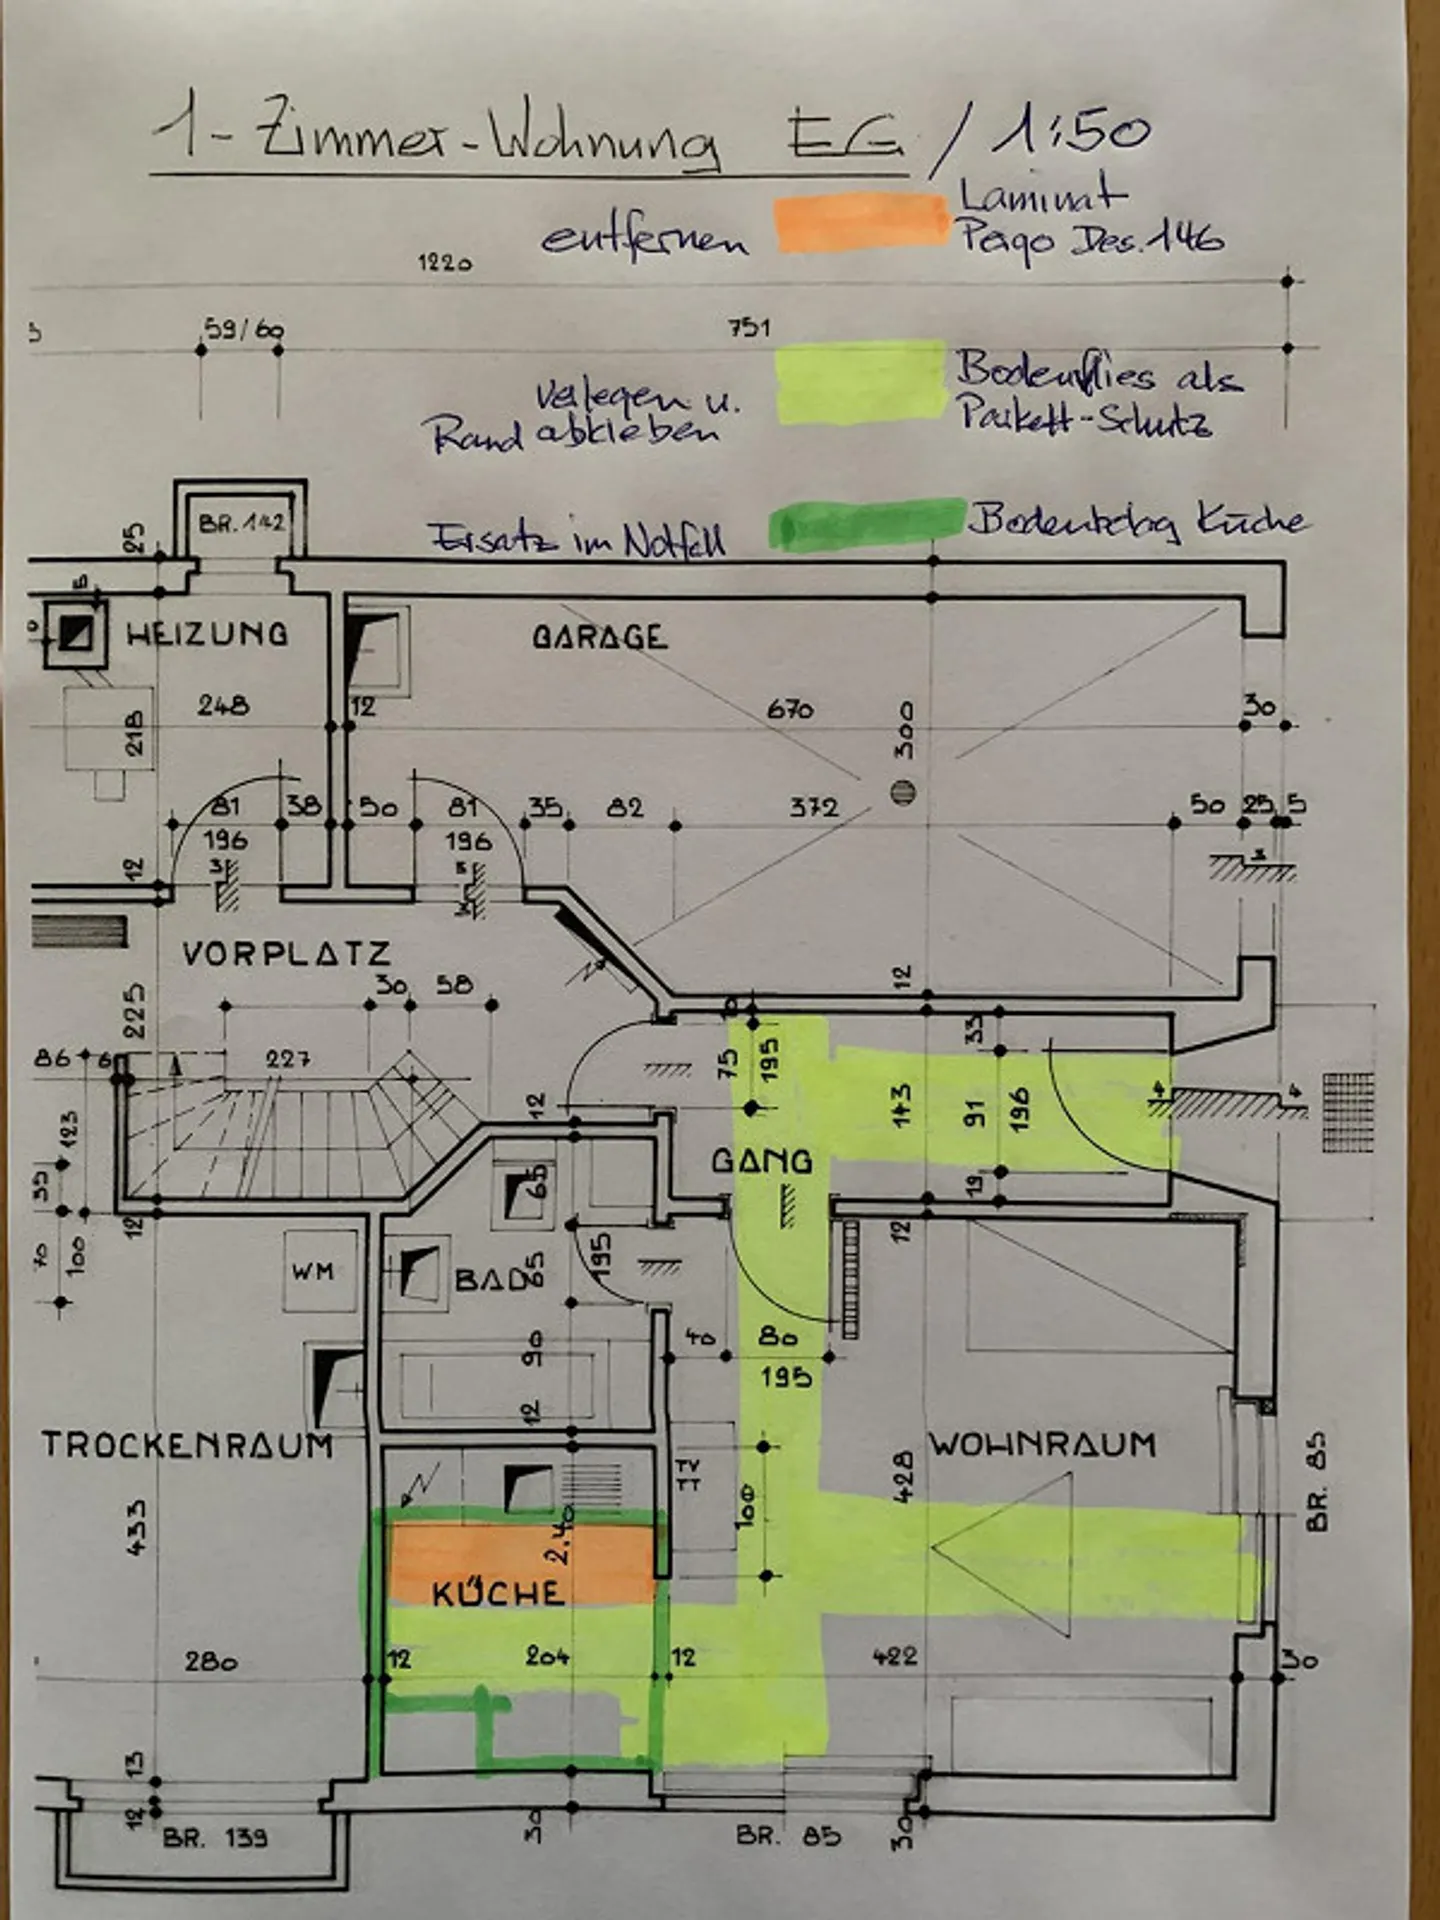 1-Zimmer-Wohnung EG / 1:50
entfernen
Laminat
Pergo Des. 146
1220
59/60
751
Verlegen u.
Rand abkleben
Bodenflies als
Parkett-Schutz
Ersatz im Notfall
Bodenbelag Küche
BR. 142
25
HEIZUNG
GARAGE
248
218
12
670
300
30
81
38
50
81
35
82
372
50
25
5
196
196
12
VORPLATZ
30
58
12
225
86
6
227
75
195
33
143
91
196
123
12
GANG
65
19
12
35
12
70
100
WM
BAD
65
195
40
80
195
90
12
TROCKENRAUM
WOHNRAUM
TV
TT
100
428
BR. 85
433
2.40
KÜCHE
280
12
204
12
422
30
13
12
BR. 139
30
BR. 85
30